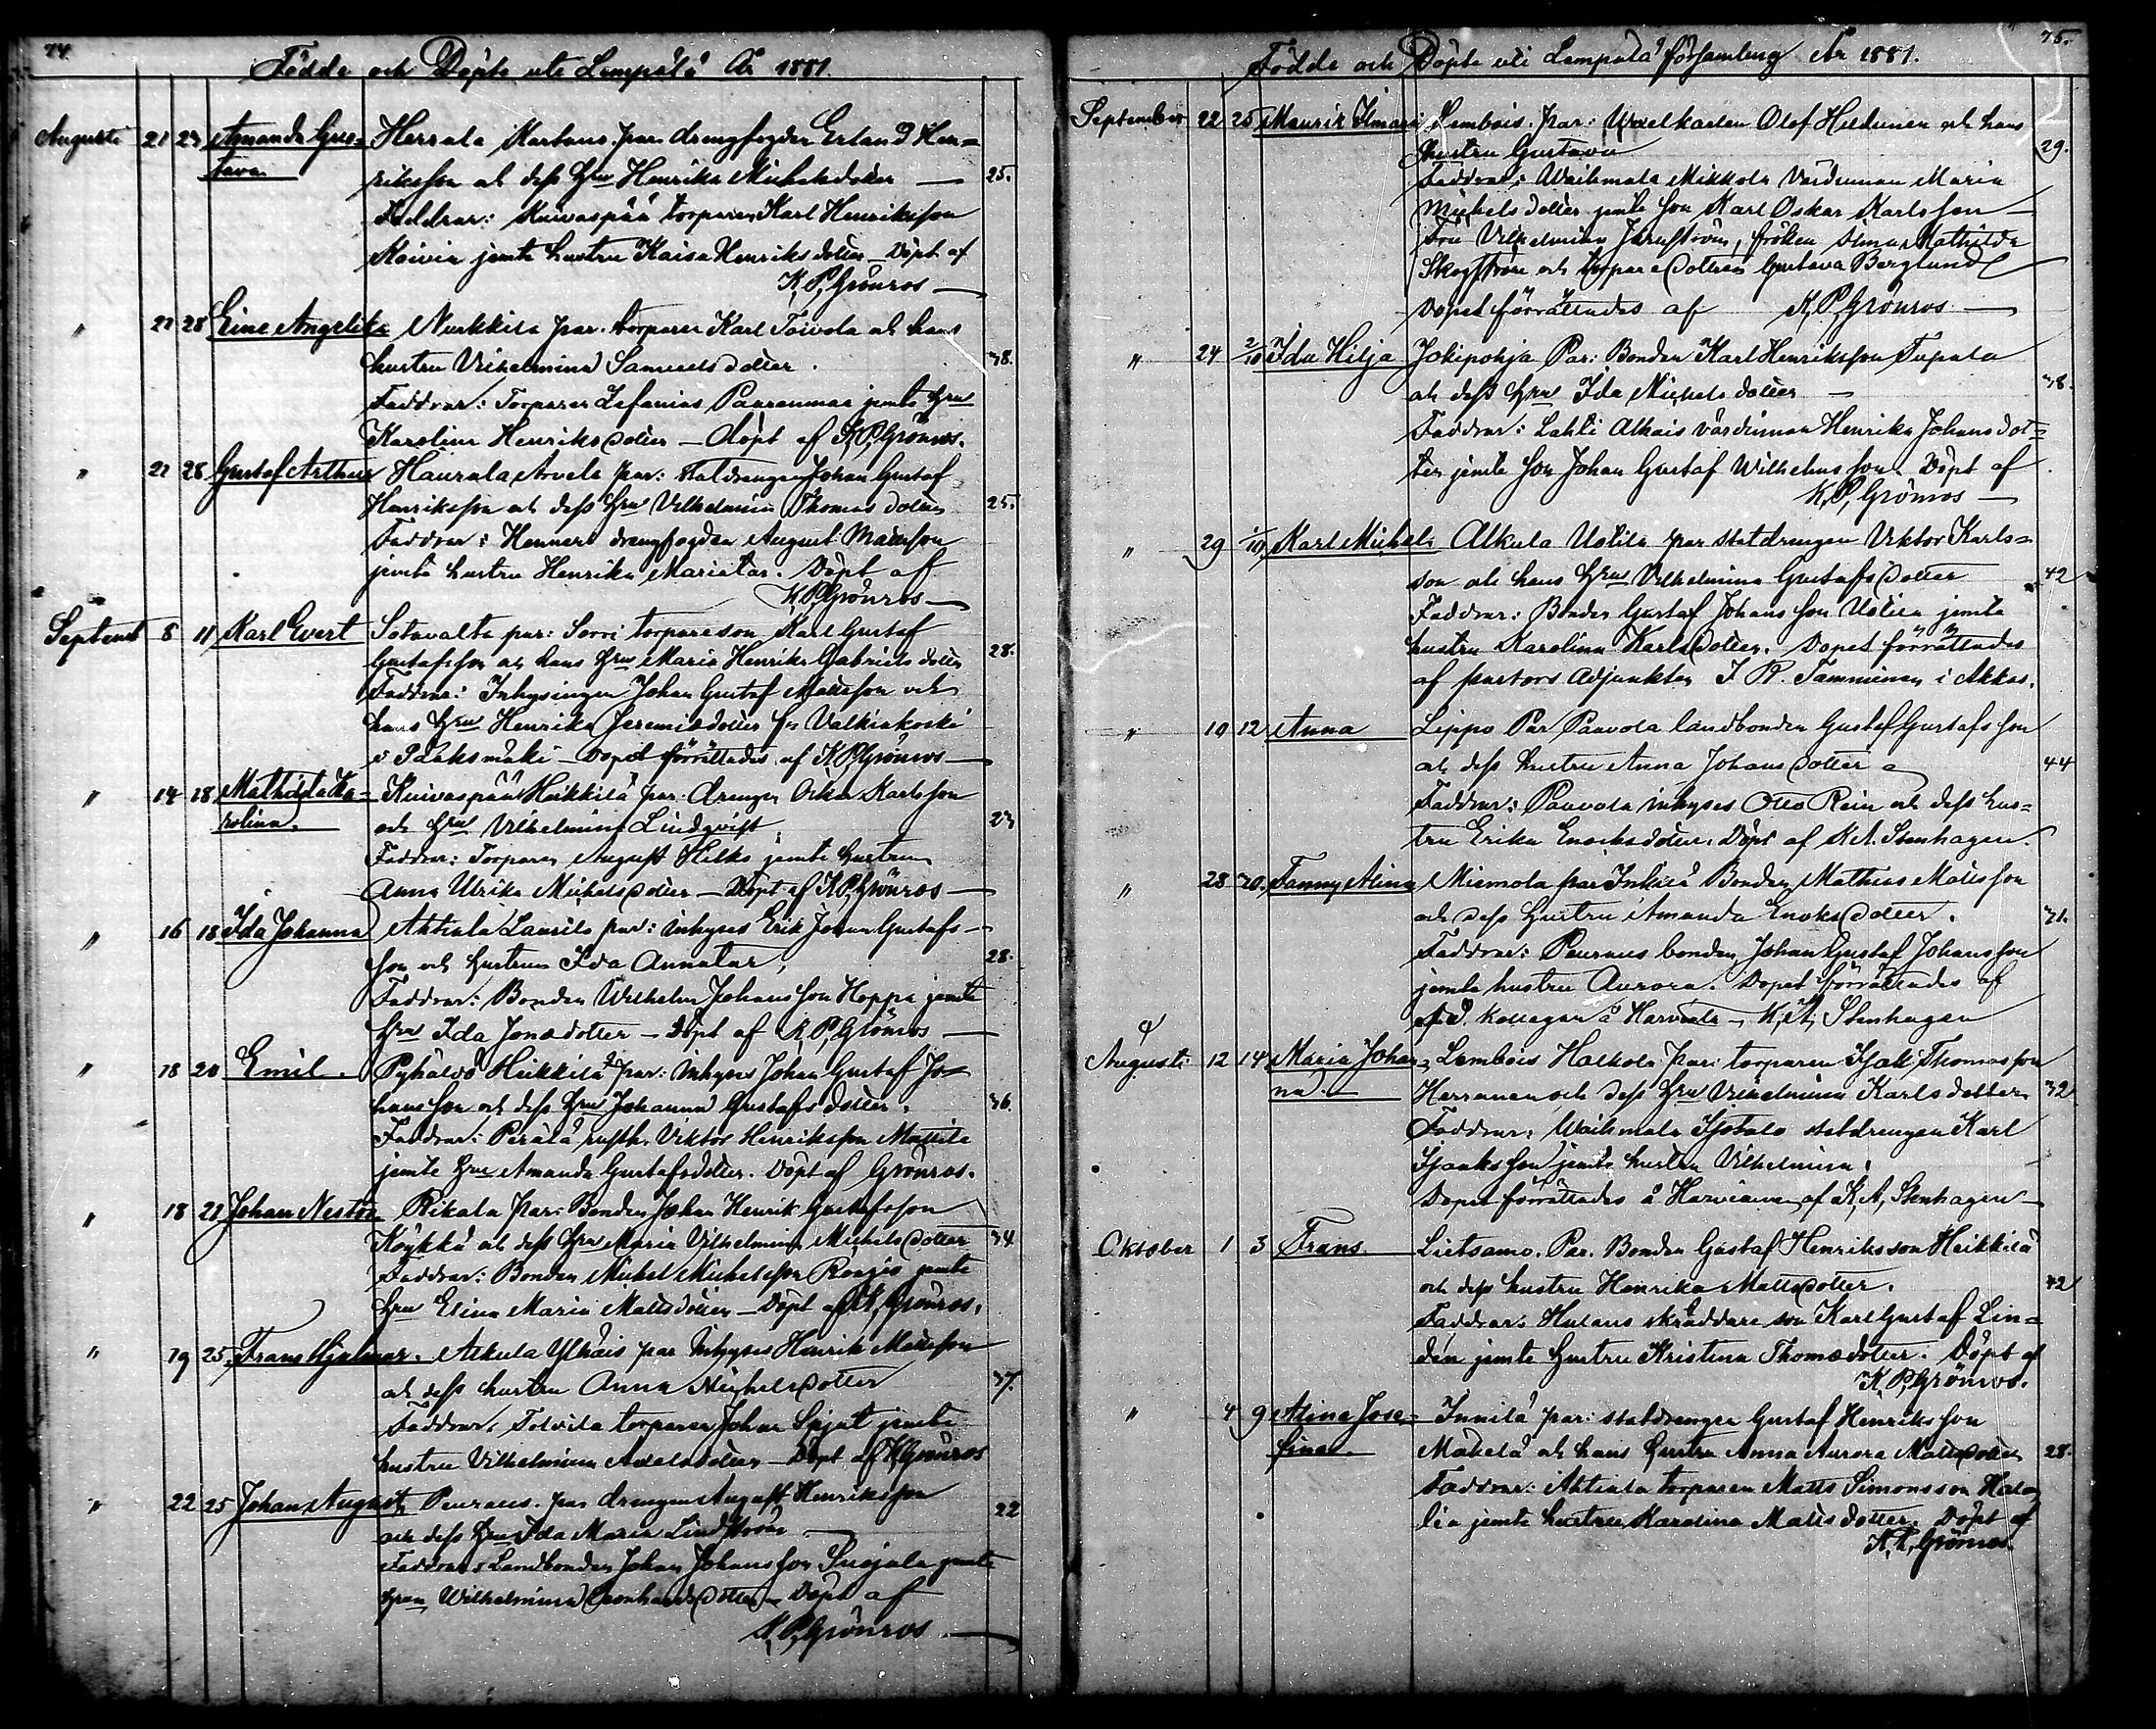 74.
Födde och Döpte uti Lempälä År 1881.
Augusti 21 27 Amanda Gus= Herrala Kartano. par. drengfogden Erland Hen=
tava. riksson och dess Hru Henrika Michelsdotter — 25.
Faddrar: Kuivaspää torparen Karl Henriksson
Koivia jemte hustru Kaisa Henriksdotter — Döpt af
K. P. Grönros —
" 21 28 Eine Angelika Nurkkila par. torparen Karl Toivola och hans
hustru Vilhelmina Samuelsdotter. 38.
Faddrar: Torparen Zefanias Paurenmaa jemte Hru
Karolina Henriksdotter — döpt af K. P. Grönros.
" 21 28 Gustaf Arthur Haurala Arvela par: statdrengen Johan Gustaf
Henriksson och dess Hru Vilhelmina Thomasdotter 25.
Faddrar: Henneri drengfogden August Mattsson
jemte hustru Henrika Mariatar. Döpt af
K. P. Grönros —
Septemb 8 11 Karl Evert Sotavalta par: Sorri torpareson Karl Gustaf
Gustafsson och hans Hru Maria Henrika Gabrielsdotter 28.
Faddrar: Inhysingen Johan Gustaf Mattsson och
hans Hru Henrika Jeremiædotter fr. Valkiakoski
i Sääksmäki — Dopet förrättades af K. P. Grönros —
" 14 18 Mathilda Ka- Kuivaspää Heikkilä par. drengen Oskar Karlsson
rolina. och Hru Vilhelmina Lindqvist 27
Faddrar: Torparen August Hilko jemte hustru
Anna Ulrika Michelsdotter — Döpt af K. P. Grönros —
" 16 18 Ida Johanna Ahtiala Laurila par: inhyses Erik Johan Gustafs-
son och hustrun Ida Annatar, 28.
Faddrar: Bonden Wilhelm Johansson Hoppa jemte
Hru Ida Jonædotter — Döpt af K. P. Grönros —
" 18 20 Emil. Pyhältö Heikkilä par: inhyses Johan Gustaf Jo-
hansson och dess Hru Johanna Gustafsdotter. 36.
Faddrar: Perälä rusth. Viktor Henriksson Mattila
jemte Hru Amanda Gustafsdotter. Döpt af Grönros.
" 18 21 Johan Nestor Rikala par: Bonden Johan Henrik Gustafsson
Köykkä och dess Hru Maria Vilhelmina Michelsdotter 34
Faddrar: Bonden Michel Michelsson Ronjio jemte
Hru Elina Maria Mattsdotter — Döpt af K. P. Grönros.
" 19 25 Frans Hjalmar. Alkula Ylhäis par inhyses Henrik Mattsson
och dess hustru Anna Michelsdotter 37.
Faddrar: Tolvila torparen Johan Spjut jemte
hustru Vilhelmina Adelsdotter — Döpt af K. P. Grönros
" 22 25 Johan August Penraus. par drengen August Henriksson 22
och dess Hru Ida Maria Lindström —
Faddrar: Landbonden Johan Johansson Suojala jemte
Hrun Wilhelmina Leonhardsdotter — Döpt af
K. P. Grönros. —
75.
Födde och Döpte uti Lempälä församling År 1881.
September 22 25 Mauriz Ilmari Lembois. Par: Waelkarlen Olof Heldunen och hans
hustru Gustava 29.
Faddrar: Waihmala Mikkola Värdinnan Maria
Michelsdotter jemte son Karl Oskar Karlsson —
Fru Vilhelmina Järnström, fröken Alma Mathilda
Skogström och torparedottren Gustava Berglund
Dopet förrättades af K. P. Grönros —
" 24 2/10 Ida Hilja Jokipohja Par: Bonden Karl Henriksson Tupala
och dess Hru Ida Michelsdotter — 38.
Faddrar: Lahti Alhais värdinnan Henrika Johansdot=
ter jemte son Johan Gustaf Wilhelmsson. Döpt af
K. P. Grönros —
" 29 1/10 Karl Michel. Alkula Uotila par statdrengen Viktor Karls=
son och hans Hru Vilhelmina Gustafsdotter 42
Faddrar: Bonden Gustaf Johansson Uotila jemte
hustru Karolina Karlsdotter. Dopet förrättades
af pastors Adjunkten I. R. Tamminen i Akkas.
" 10 12 Anna Lippo Par Paavola landbonden Gustaf Gustafsson
och dess hustru Anna Johansdotter 44
Faddrar: Paavola inhyses Otto Rein och dess hus=
tru Erika Enoksdotter. Döpt af K. A. Stenhagen.
" 28 30. Fanny Alina Miemola par Inkilä Bonden Mathias Mattsson
och dess hustru Amanda Enoksdotter. 31.
Faddrar: Penraus bonden Johan Gustaf Johansson
jemte hustru Aurora. Dopet förrättades af
v. d. kollegan å Harviala — K. A. Stenhagen
Augusti 12 14 Maria Johan- Lembois Halkola par: torparen Isak Thomasson
na. — Herranen och dess Hru Vilhelmina Karlsdotter 32
Faddrar: Waihmala Isotalo statdrengen Karl
Isaaksson jemte hustru Vilhelmina.
Dopet förrättades å Harviala af K. A. Stenhagen —
Oktober 1 3 Frans. Lietsamo. Par. Bonden Gustaf Henriksson Heikkilä
och dess hustru Henrika Mattsdotter. 42
Faddrar: Hulaus skräddare son Karl Gustaf Lin=
den jemte hustru Kristina Thomædotter. Döpt af
K. P. Grönros.
" 4 9 Alina Jose- Innilä par: statdrengen Gustaf Henriksson
fina. Mäkelä och hans hustru Anna Aurora Mattsdotter 28.
Faddrar: Ahtiala torparen Matts Simonsson Hato
lia jemte hustru Karolina Mattsdotter. Döpt af
K. P. Grönros.